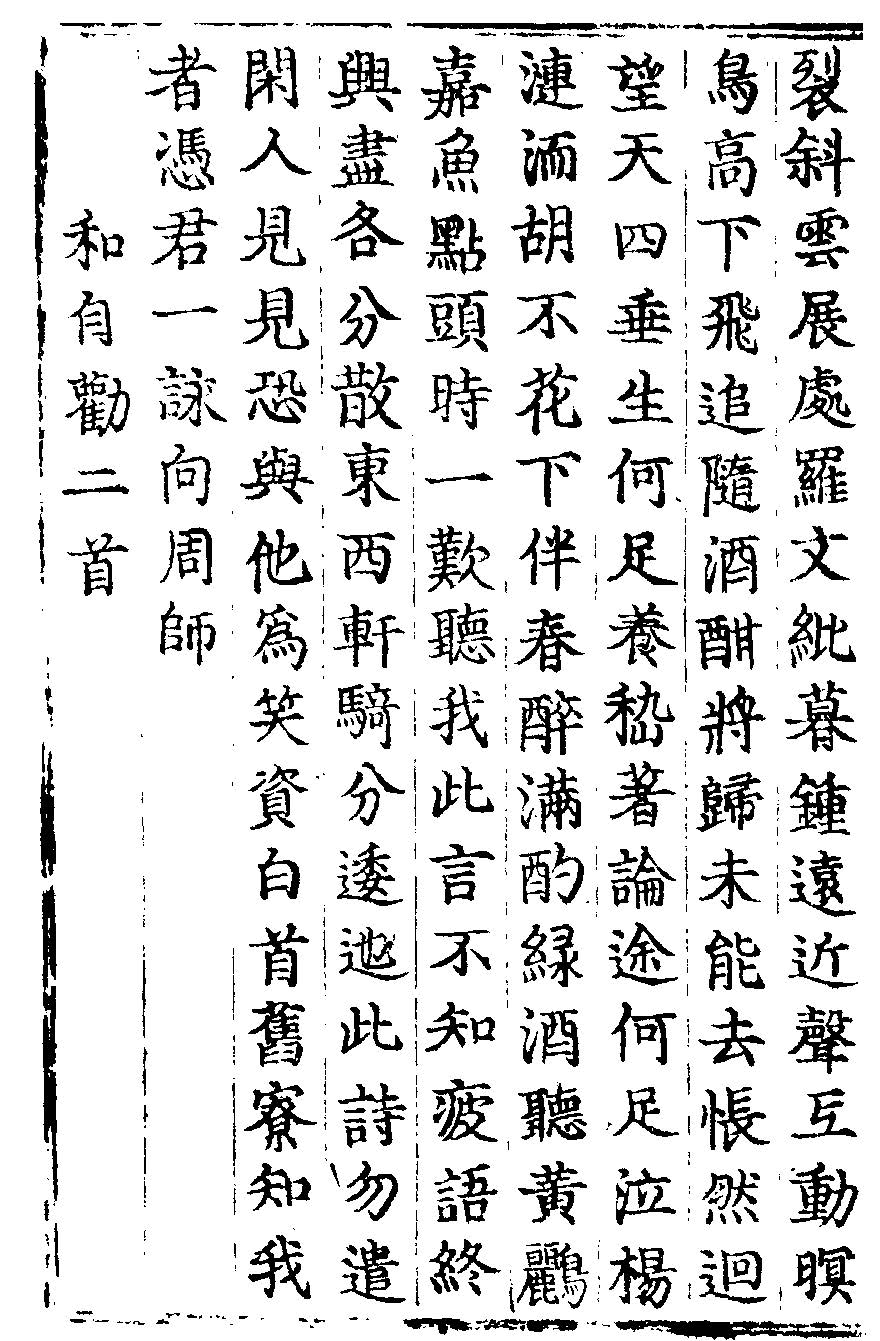 裂斜雲展處羅文紕暮鍾遠近聲互動暝
鳥高下飛追隨酒酣將歸未能去悵然迴
望天四垂生何足養嵇著論途何足泣楊
漣洏胡不花下伴春醉滿酌緑酒聽黃鸝
嘉魚點頭時一歎聽我此言不知疲語終
興盡各分散東西軒騎分逶迤此詩勿遣
閑人見見恐與他爲笑資白首舊寮知我
者憑君一詠向周師
和自勸二首